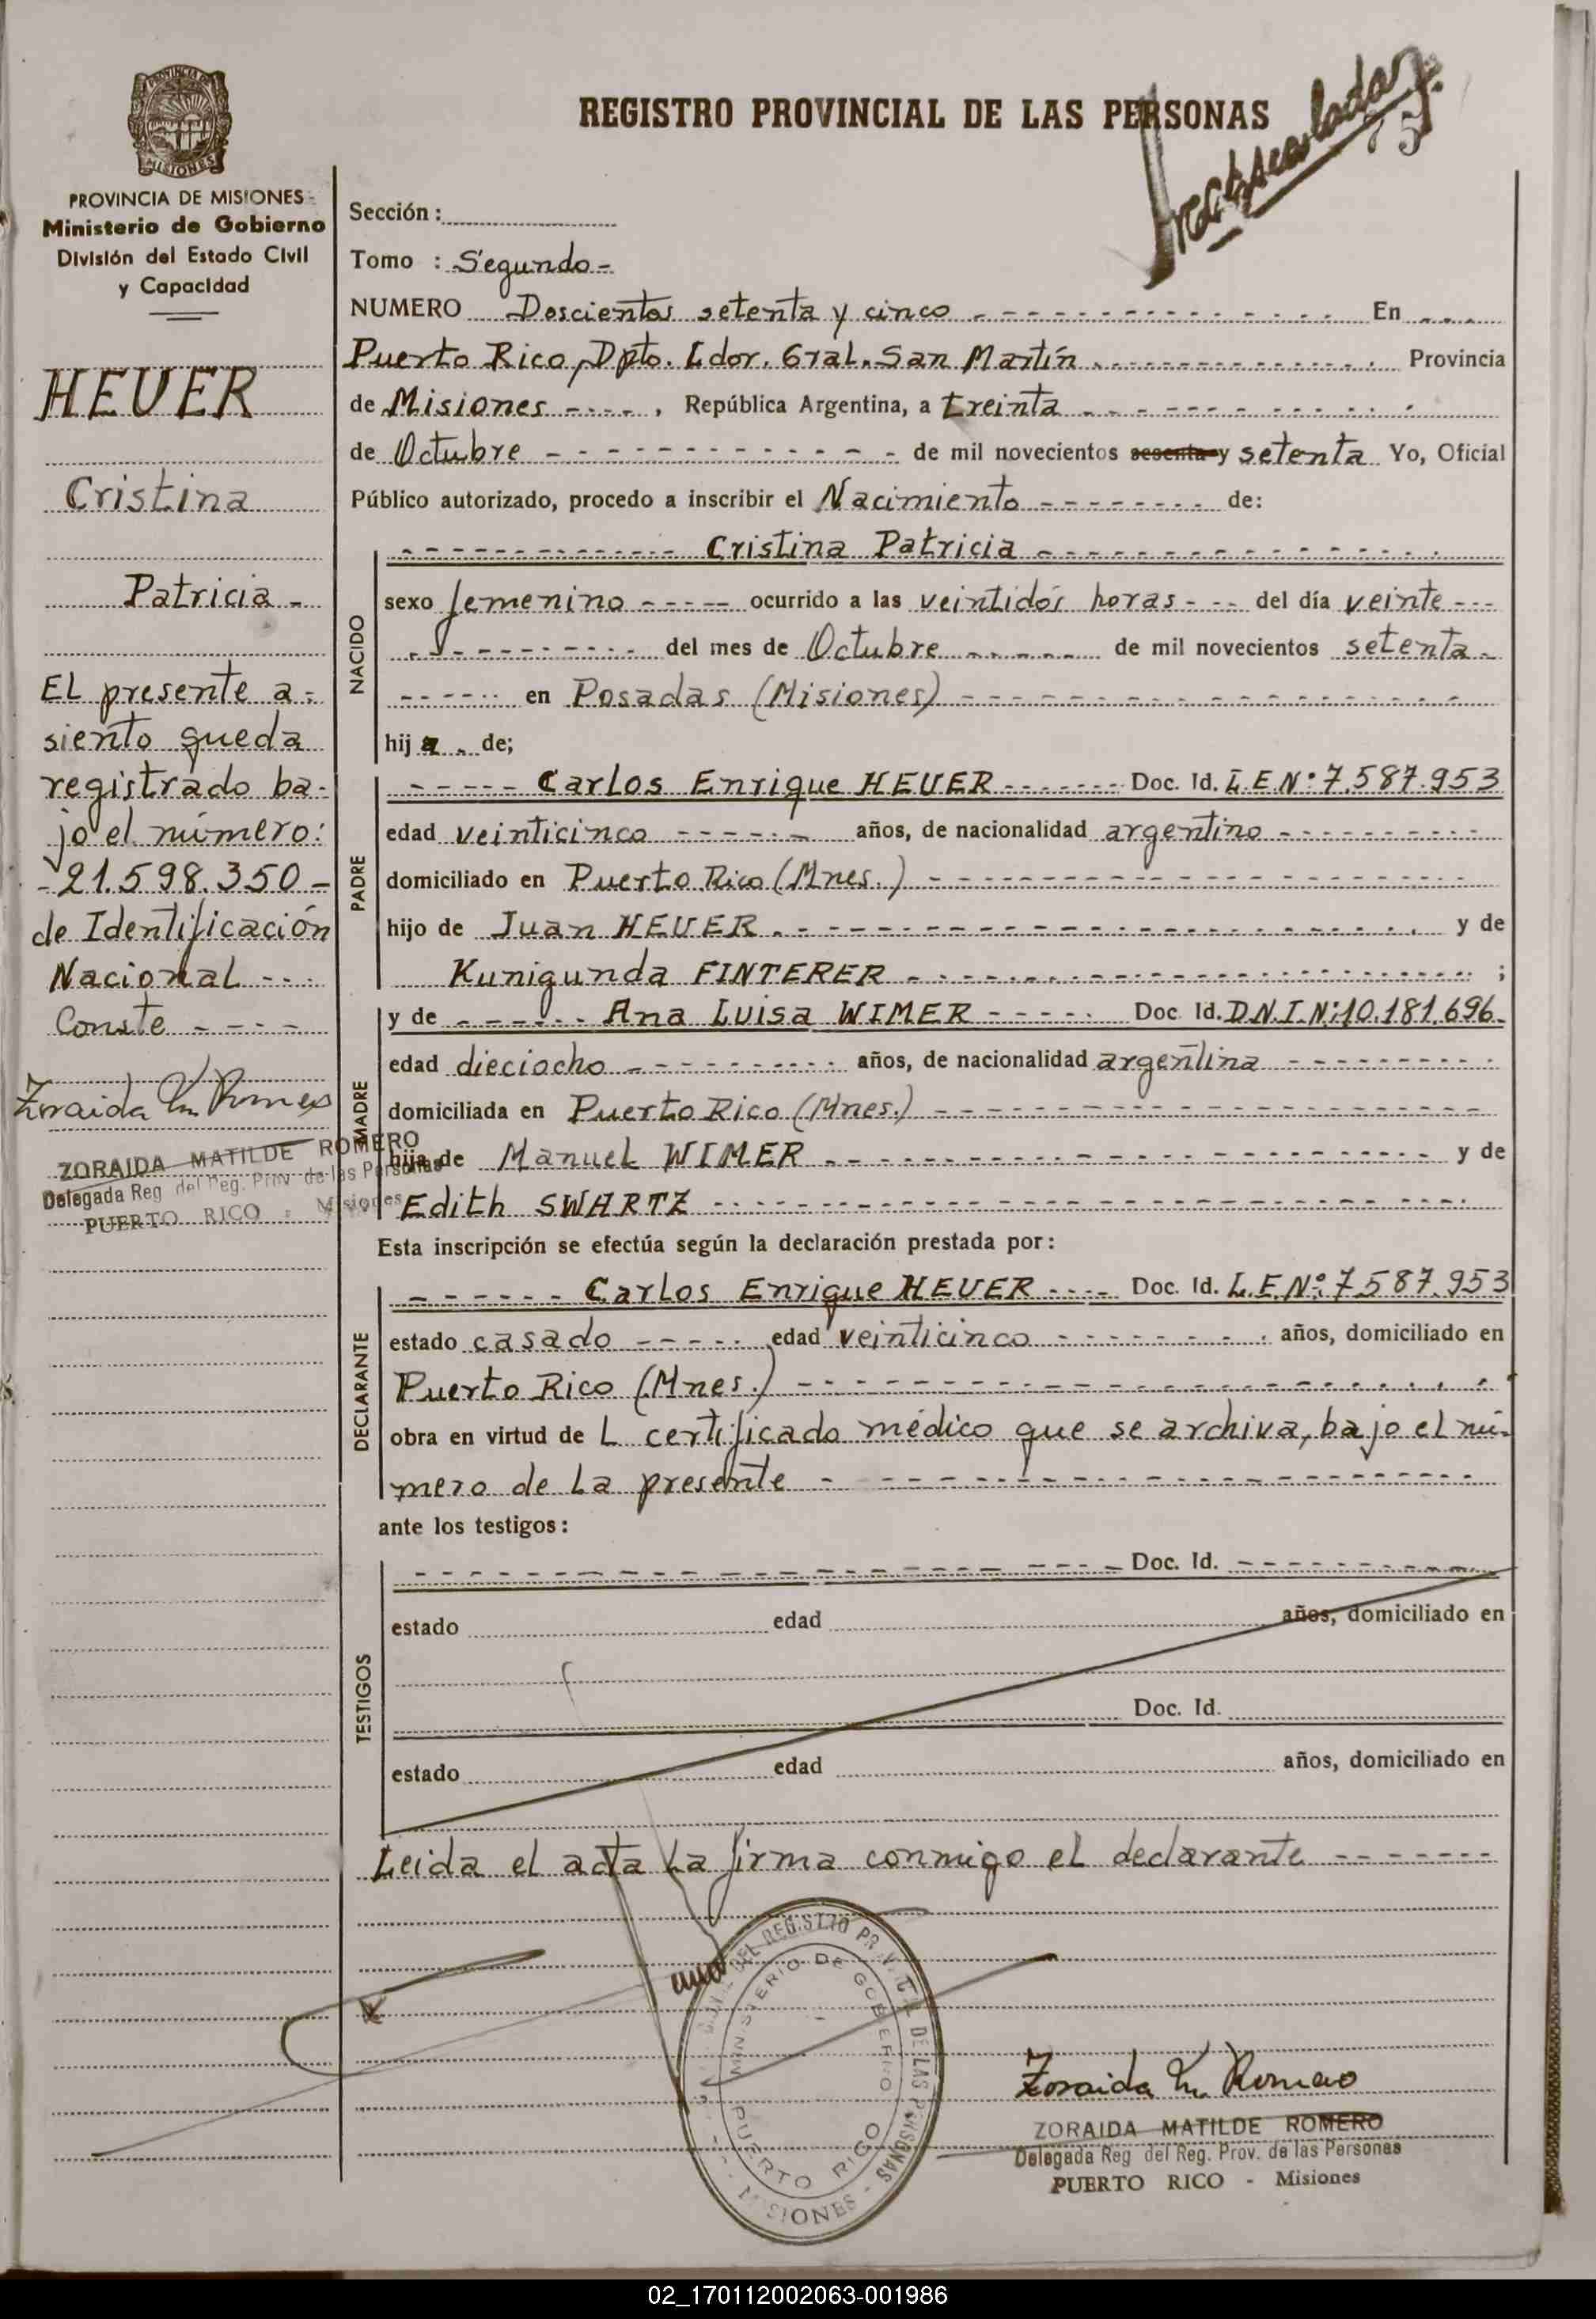 REGISTRO PROVINCIAL DE LAS PERSONAS
75
PROVINCIA DE
MISIONES
PROVINCIA DE MISIONES
Ministerio de Gobierno
División del Estado Civil
y Capacidad
HEUER
Cristina
Patricia -
EL presente a-
siento queda
registrado ba-
jo el número:
- 21.598.350 -
de Identificación
Nacional ---
Conste ----
Zoraida M. Romero
ZORAIDA MATILDE ROMERO
Delegada Reg. del Reg. Prov. de las Personas
PUERTO RICO - Misiones
Sección:
Tomo : Segundo-
NUMERO Doscientos setenta y cinco En
Puerto Rico, Dpto. Ldor. Gral. San Martín Provincia
de Misiones ----, República Argentina, a treinta
de Octubre de mil novecientos sesenta y setenta Yo, Oficial
Público autorizado, procedo a inscribir el Nacimiento de:
NACIDO
Cristina Patricia
sexo femenino ocurrido a las veintidós horas del día veinte
del mes de Octubre de mil novecientos setenta
en Posadas (Misiones)
hija de;
PADRE
Carlos Enrique HEUER Doc. Id. L.E.Nº 7.587.953
edad veinticinco años, de nacionalidad argentino
domiciliado en Puerto Rico (Mnes.)
hijo de Juan HEUER y de
Kunigunda FINTERER ;
MADRE
y de Ana Luisa WIMER Doc. Id. D.N.I.Nº 10.181.696
edad dieciocho años, de nacionalidad argentina
domiciliada en Puerto Rico (Mnes.)
hija de Manuel WIMER y de
Edith SWARTZ
Esta inscripción se efectúa según la declaración prestada por:
DECLARANTE
Carlos Enrique HEUER Doc. Id. L.E.Nº 7.587.953
estado casado edad veinticinco años, domiciliado en
Puerto Rico (Mnes.)
obra en virtud de L certificado médico que se archiva, bajo el nú-
mero de La presente
ante los testigos:
TESTIGOS
Doc. Id.
estado edad años, domiciliado en
Doc. Id.
estado edad años, domiciliado en
Leida el acta La firma conmigo el declarante
DEL REGISTRO PROVINCIAL DE LAS PERSONAS
MINISTERIO DE GOBIERNO
PUERTO RICO
- MISIONES -
Zoraida M. Romero
ZORAIDA MATILDE ROMERO
Delegada Reg. del Reg. Prov. de las Personas
PUERTO RICO - Misiones
02_170112002063-001986